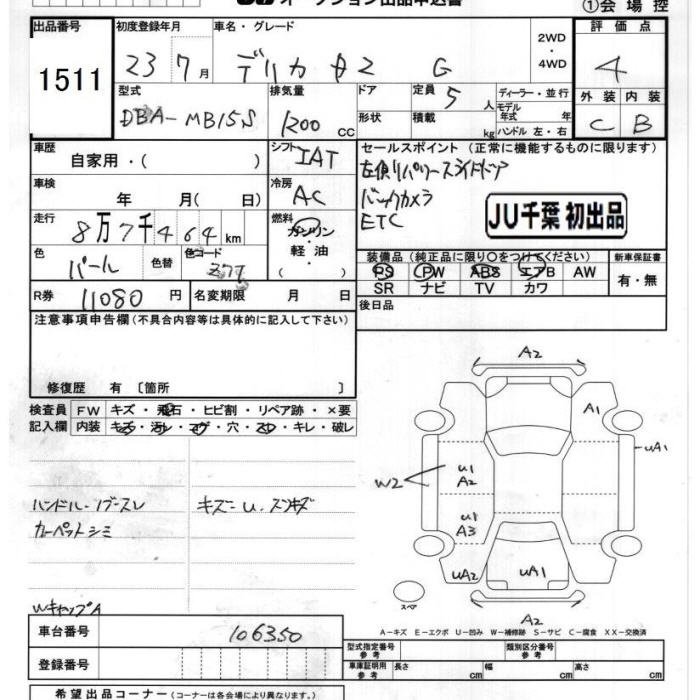 ①会場控
出品番号 1511
初度登録年月 23 7月
車名・グレード デリカ D2 G
2WD・4WD
評価点 4
型式 DBA-MB15S
排気量 1200 cc
ドア
形状
定員 5 人
積載 kg
ディーラー・並行
モデル年式 年
ハンドル 左・右
外装 C
内装 B
車歴 自家用・( )
シフト IAT
セールスポイント(正常に機能するものに限ります)
左側リパワースライドドア
バックカメラ
ETC
JU千葉 初出品
車検 年 月( 日)
冷房 AC
走行 8万7千464km
燃料 ガソリン・軽油・( )
色 パール
色替
色コード Z7T
装備品(純正品に限り○をつけてください)
PS PW ABS エアB AW
SR ナビ TV カワ
新車保証書 有・無
R券 11080 円
名変期限 月 日
後日品
注意事項申告欄(不具合内容等は具体的に記入して下さい)
修復歴 有〔箇所 〕
検査員記入欄
FW キズ・飛石・ヒビ割・リペア跡・×要
内装 キズ・汚レ・コゲ・穴・スレ・キレ・破レ
ハンドル・ノブースレ
カーペットシミ
キズーU.スリキズ
WキャップA
A2
A1
UA1
W2
U1
A2
U1
A3
UA2
UA1
スペア
A2
A-キズ E-エクボ U-凹み W-補修跡 S-サビ C-腐食 XX-交換済
車台番号 106350
登録番号
型式指定番号 参考
類別区分番号 参考
車庫証明用 参考 長さ cm 幅 cm 高さ cm
希望出品コーナー(コーナーは各会場により異なります。)